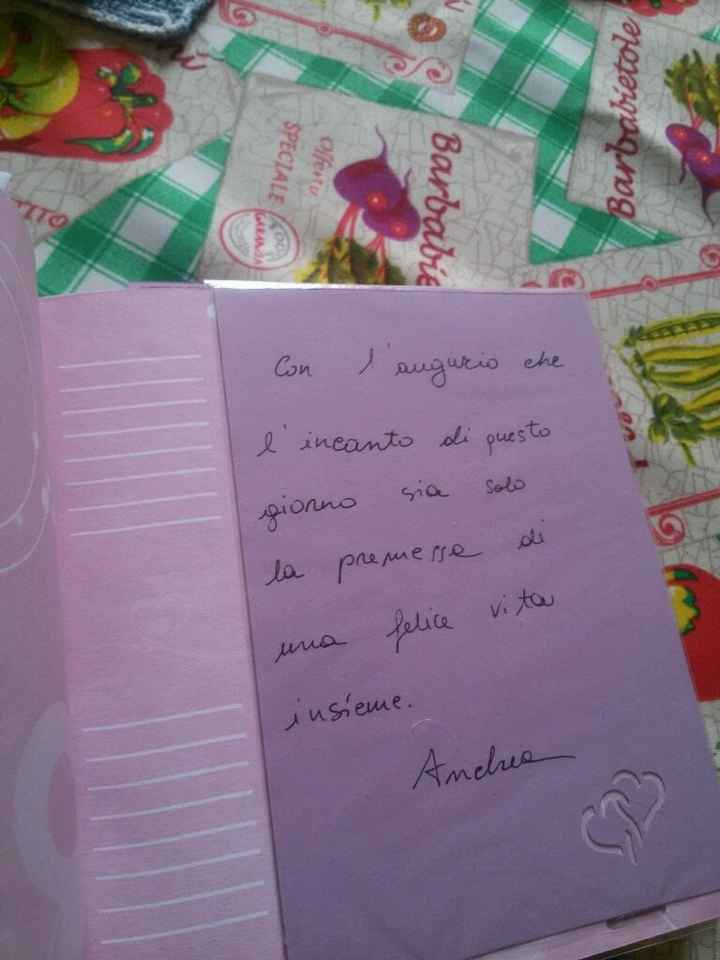 Barbabietole
Offerta
SPECIALE
Barbabie
Con l'augurio che
l'incanto di questo
giorno sia solo
la premessa di
una felice vita
insieme.
Andrea